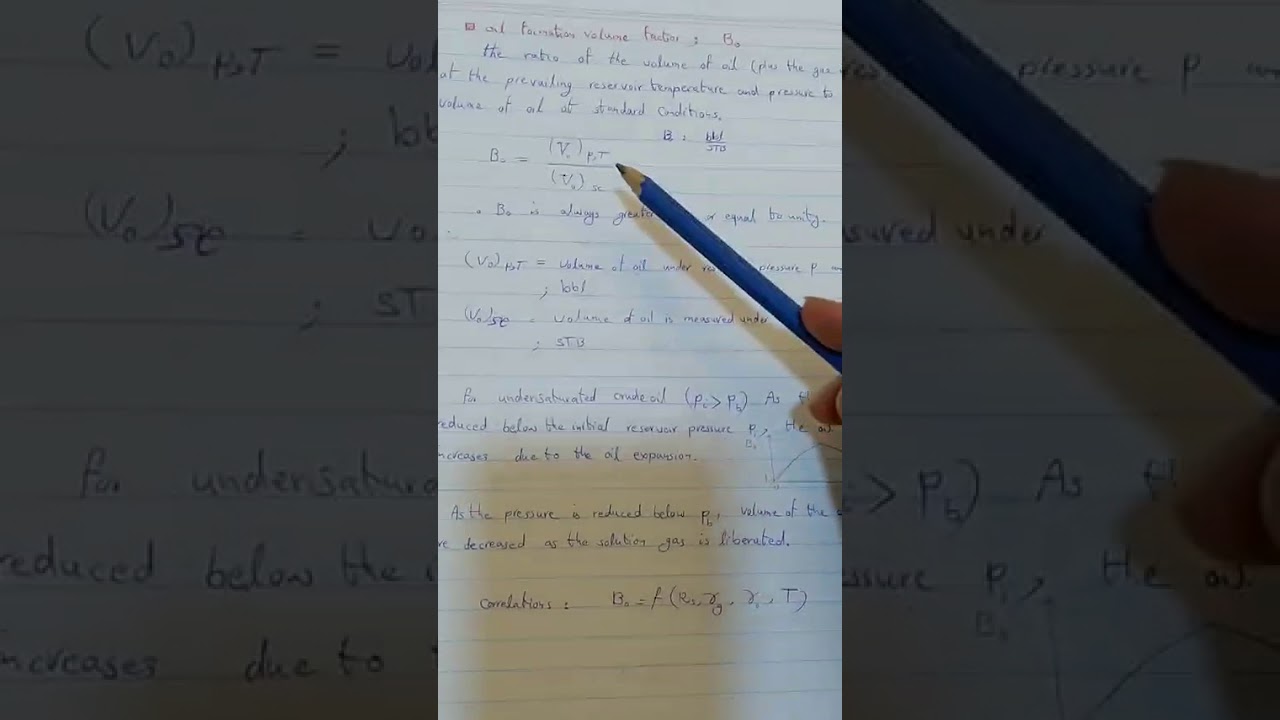 oil formation volume factor : Bo
the ratio of the volume of oil (plus the gas
at the prevailing reservoir temperature and pressure to
volume of oil at standard conditions.
B : bbl/STB
Bo = (Vo) p,T / (Vo) sc
. Bo is always greater or equal to unity.
(Vo) p,T = volume of oil under pressure p
; bbl
(Vo) sc = volume of oil is measured under
; STB
for undersaturated crude oil (Pi > Pb) As
reduced below the initial reservoir pressure Pi, the oil
increases due to the oil expansion.
Bo
As the pressure is reduced below Pb, volume of the
decreased as the solution gas is liberated.
correlations : Bo = f (Rs, γg, γo, T)